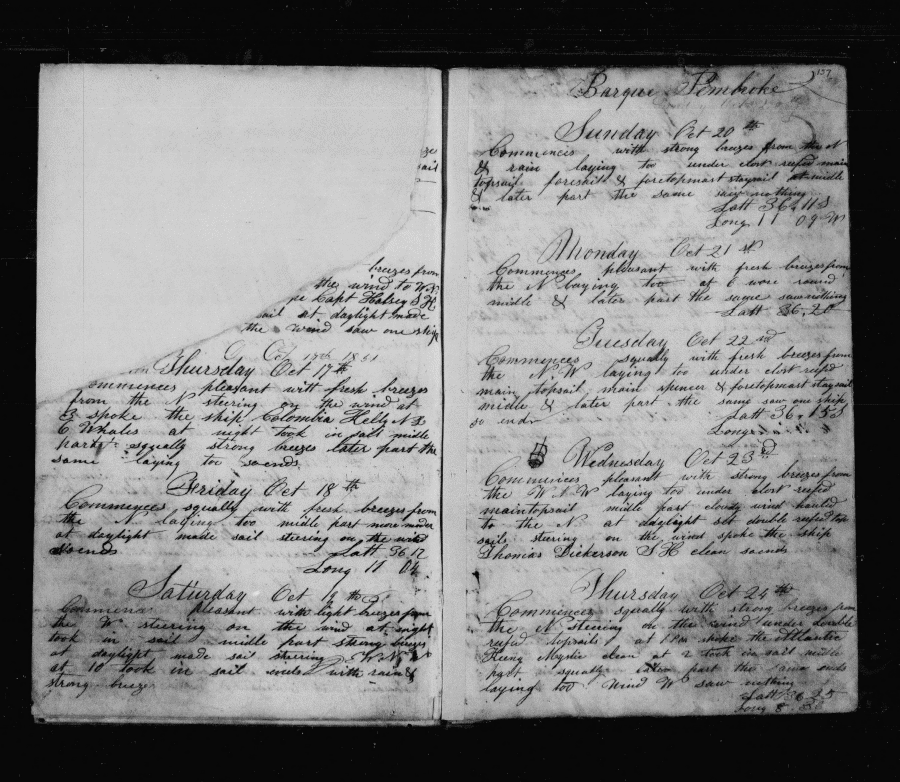 ze
sail
breezes from
the wind to W S
Capt Halsey S H
sail at daylight made
the wind saw one ship
Oct 17th 18
Thursday Oct 17th
Commences pleasant with fresh breezes
from the N steering on the wind at
3 spoke the ship Colombia Hellz N S
6 Whales at night took in sail midle
parts squally strong breezes later part the
same laying too so ends
Friday Oct 18th
Commences squally with fresh breezes from
the N laying too midle part more moder
at daylight made sail steering on the wind
so ends Latt 36 12
Long 11 04
Saturday Oct 19th
Commences pleasant with light breezes from
the W steering on the wind at night
took in sail midle part strong breezes
at daylight made sail steering W N W
at 10 took in sail ends with rain &
strong breeze
157
Barque Pembroke
Sunday Oct 20th
Commencis with strong breezes from the N
& rain laying too under clost reefed main
topsail foresail & foretopmast staysail at midle
& later part the same saw nothing
Latt 36,11 S
Long 11 09 W
Monday Oct 21st
Commences pleasant with fresh breezes from
the N laying too at 6 wore round
midle & later part the same saw nothing
Latt 36,20
Tuesday Oct 22nd
Commences squally with fresh breezes from
the N W laying too under clost reefd
main topsail main spencer & foretopmast staysail
midle & later part the same saw one ship
so ends Latt 36.15 S
Long
Wednesday Oct 23d
Commences pleasant with strong breezes from
the W N W laying too under clost reefed
maintopsail midle part cloudy wind hauld
to the N at daylight set double reefed top
sails steering on the wind spoke the ship
Thomas Dickerson S H clean so ends
Thursday Oct 24th
Commences squally with strong breezes from
the N steering on the wind under double
reefed topsails at 1 PM spoke the Atlantic
Mystic clean at 2 took in sail midle
part squally later part the same ends
laying too Wind W saw nothing
Latt 36 25
Long 8.